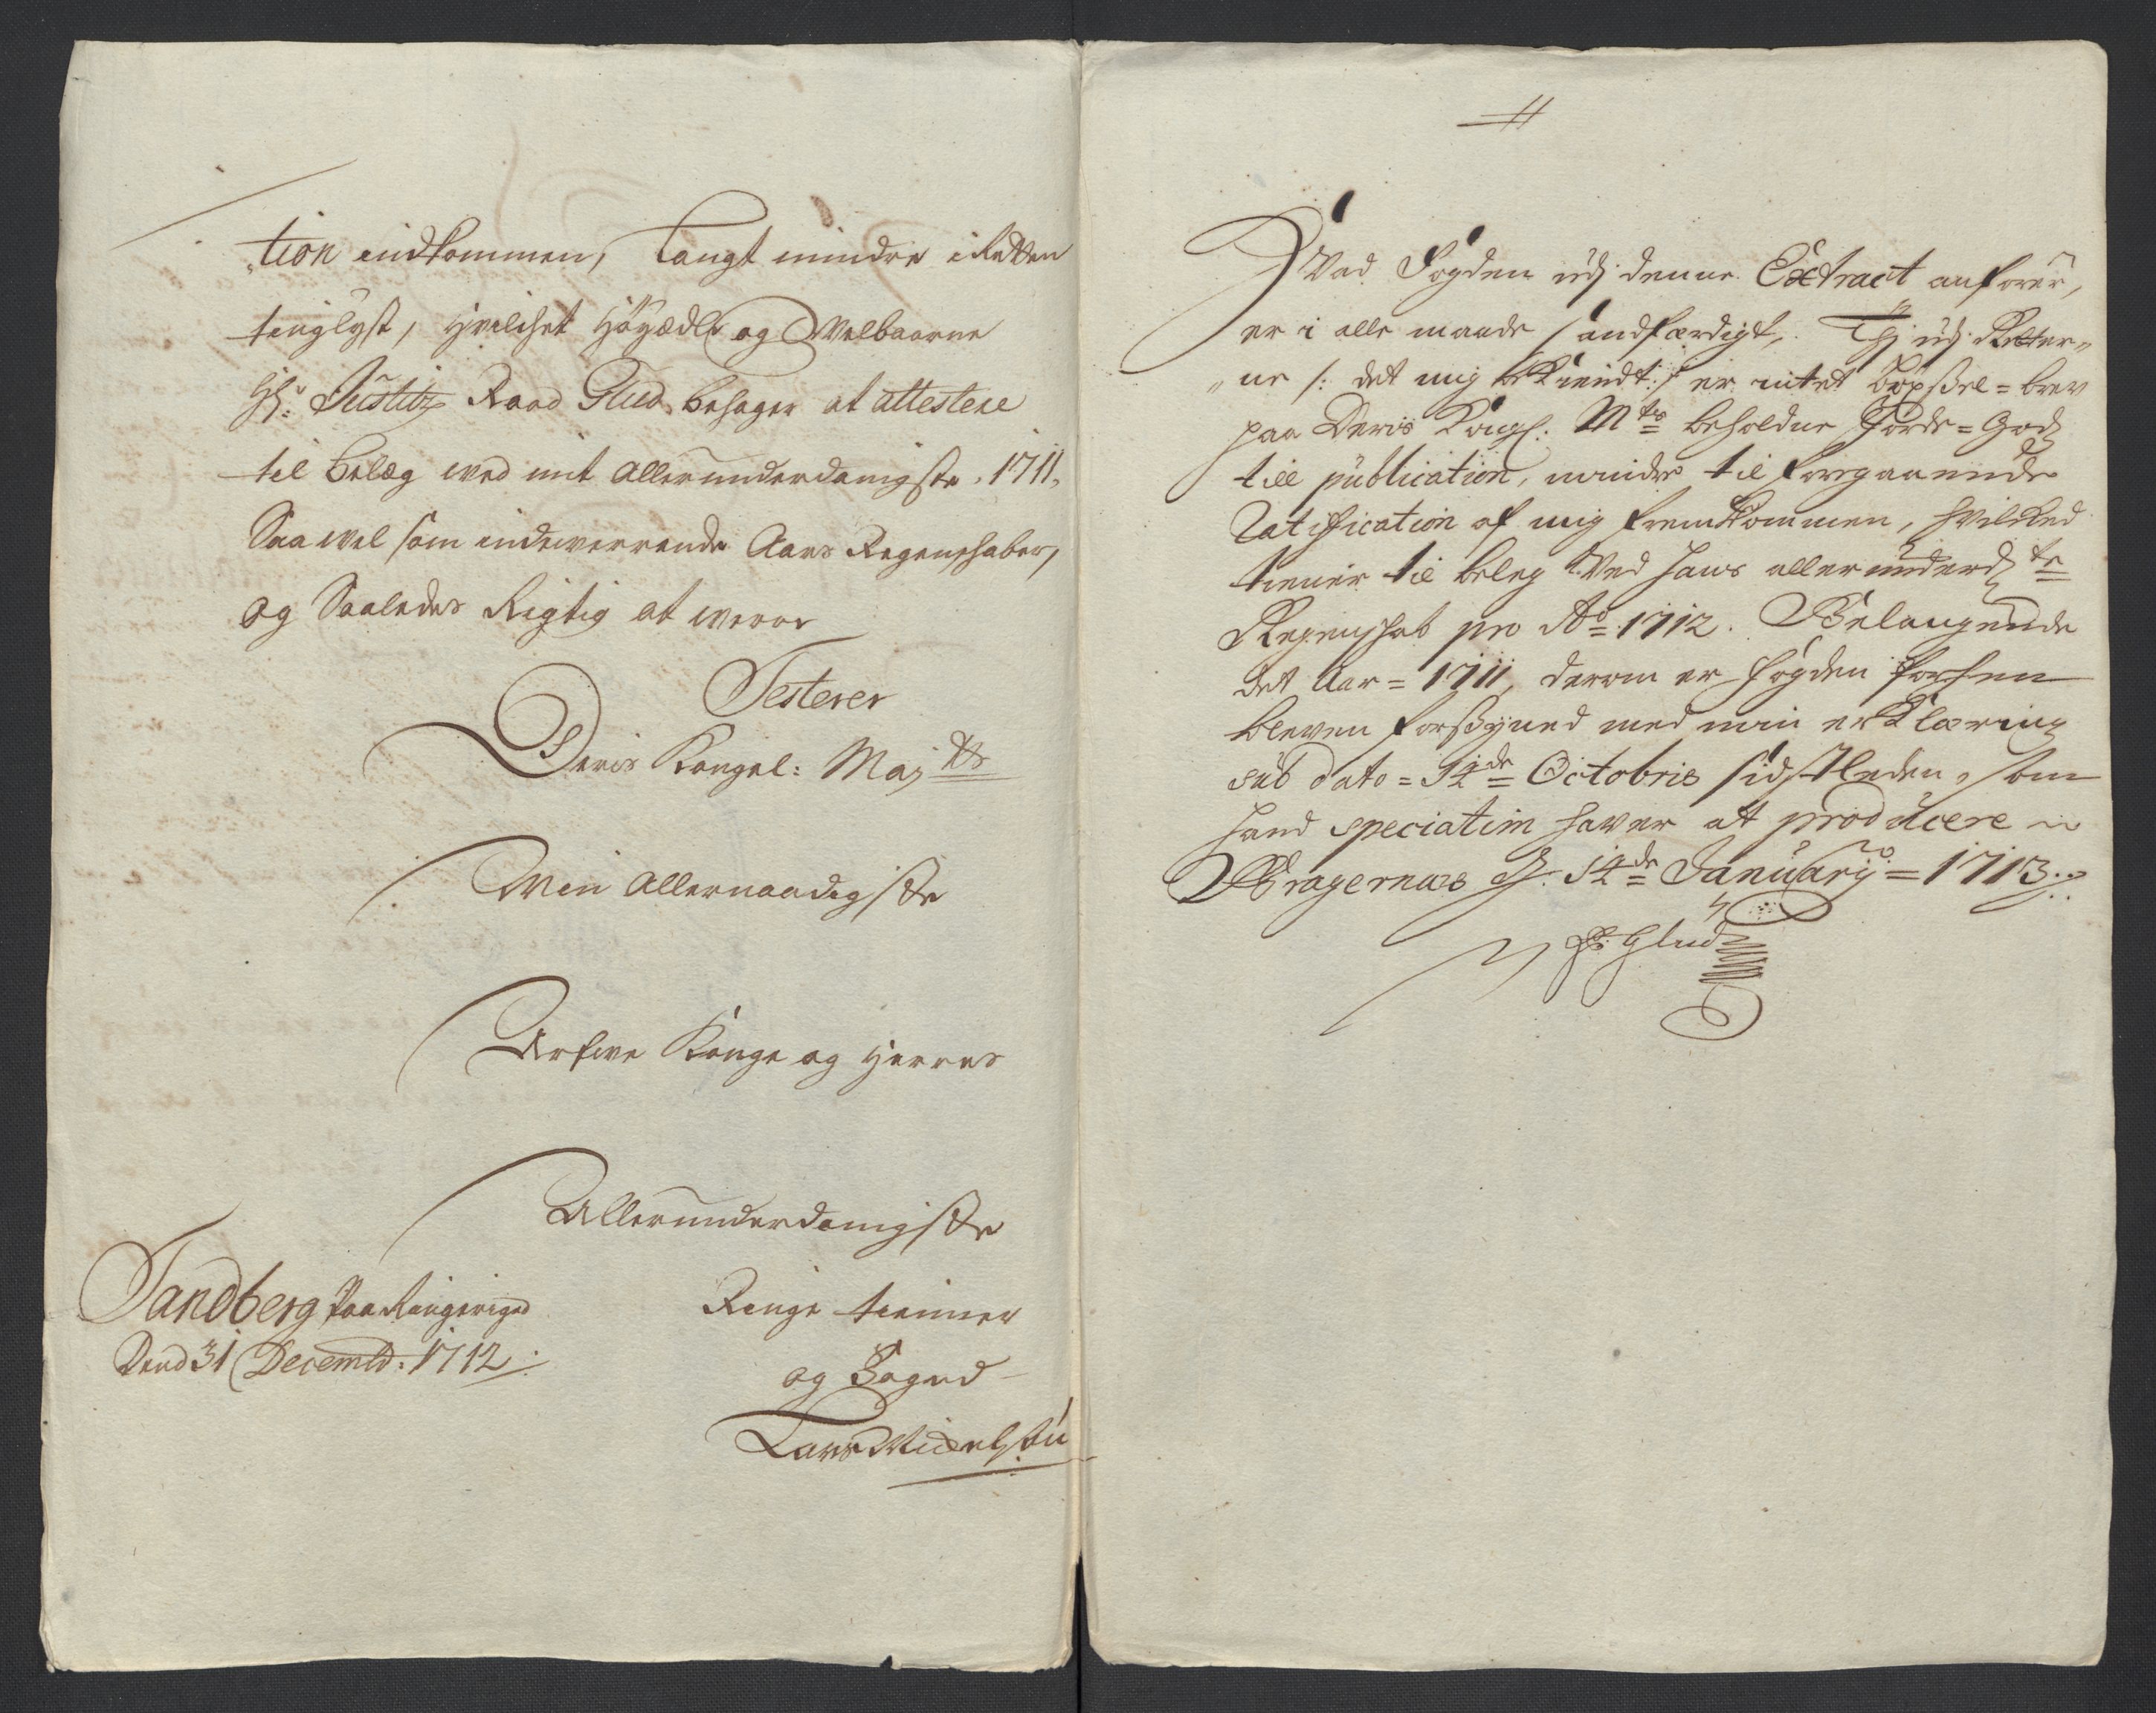 tion indkommen, langt mindre i Retten
tinglyst, hvilchet HøyÆdle og Welbaarne
Hr: Justitz Raad Glud behager at attestere
til belæg wed mit allerunderdanigste 1711,
Saawel som indewerende Aars Regenschaber,
og Saaledes Rigtig at werre
Testerer
Deris Kongel: Maj ts
Min allernaadigste
Arfwe Konge og Herres
Allerunderdanigste
Ringe tienner
og Foged
Lars
Tandberg paa Ringerige
Dend 31 Decembr: 1712
Hvad Fogden udj denne Extract anfører,
er i alle maade sandfærdigt, Thj udj Retter-
"ne /: det mig bekiendt :/ er intet böxsel=brev
paa Deris Kongl: Mts beholdne Jorde=Gods
till publication, mindre til foregaaende
Ratification af mig fremkommen, hvilked
tiener til beleg Ved hans allerunderdste
Regenschab pro Ao 1712. Belangende
det Aar=1711, derom er fogden forhen
bleven forsÿned med min erklæring
sub dato=14de Octobris sidstleden, som
hand speciatim haver at producere
Bragernæs d. 14de Januarÿ=1713.
Glud